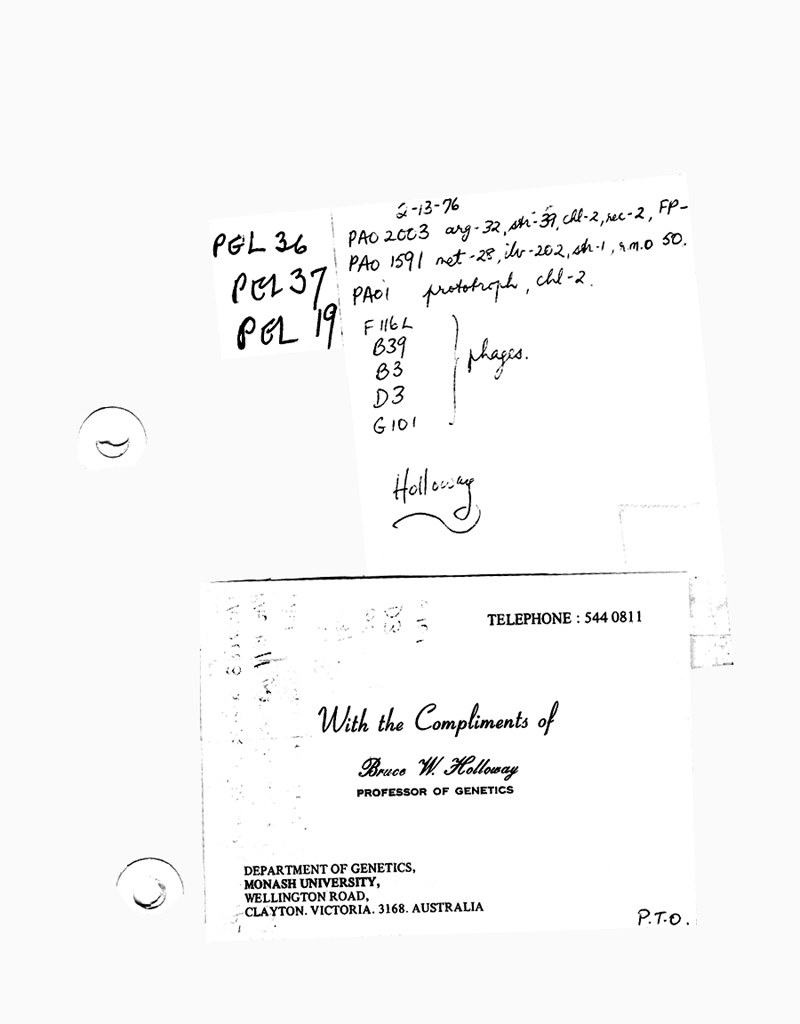 2-13-76
PGL 36
PGL 37
PGL 19
PAO 2003 arg-32, str-39, chl-2, rec-2, FP-
PAO 1591 met-28, ilv-202, str-1, r.m.o 50.
PAO1 prototroph, chl-2.
F116L
B39
B3
D3
G101
phages.
Holloway
TELEPHONE : 544 0811
With the Compliments of
Bruce W. Holloway
PROFESSOR OF GENETICS
DEPARTMENT OF GENETICS,
MONASH UNIVERSITY,
WELLINGTON ROAD,
CLAYTON. VICTORIA. 3168. AUSTRALIA
P.T.O.